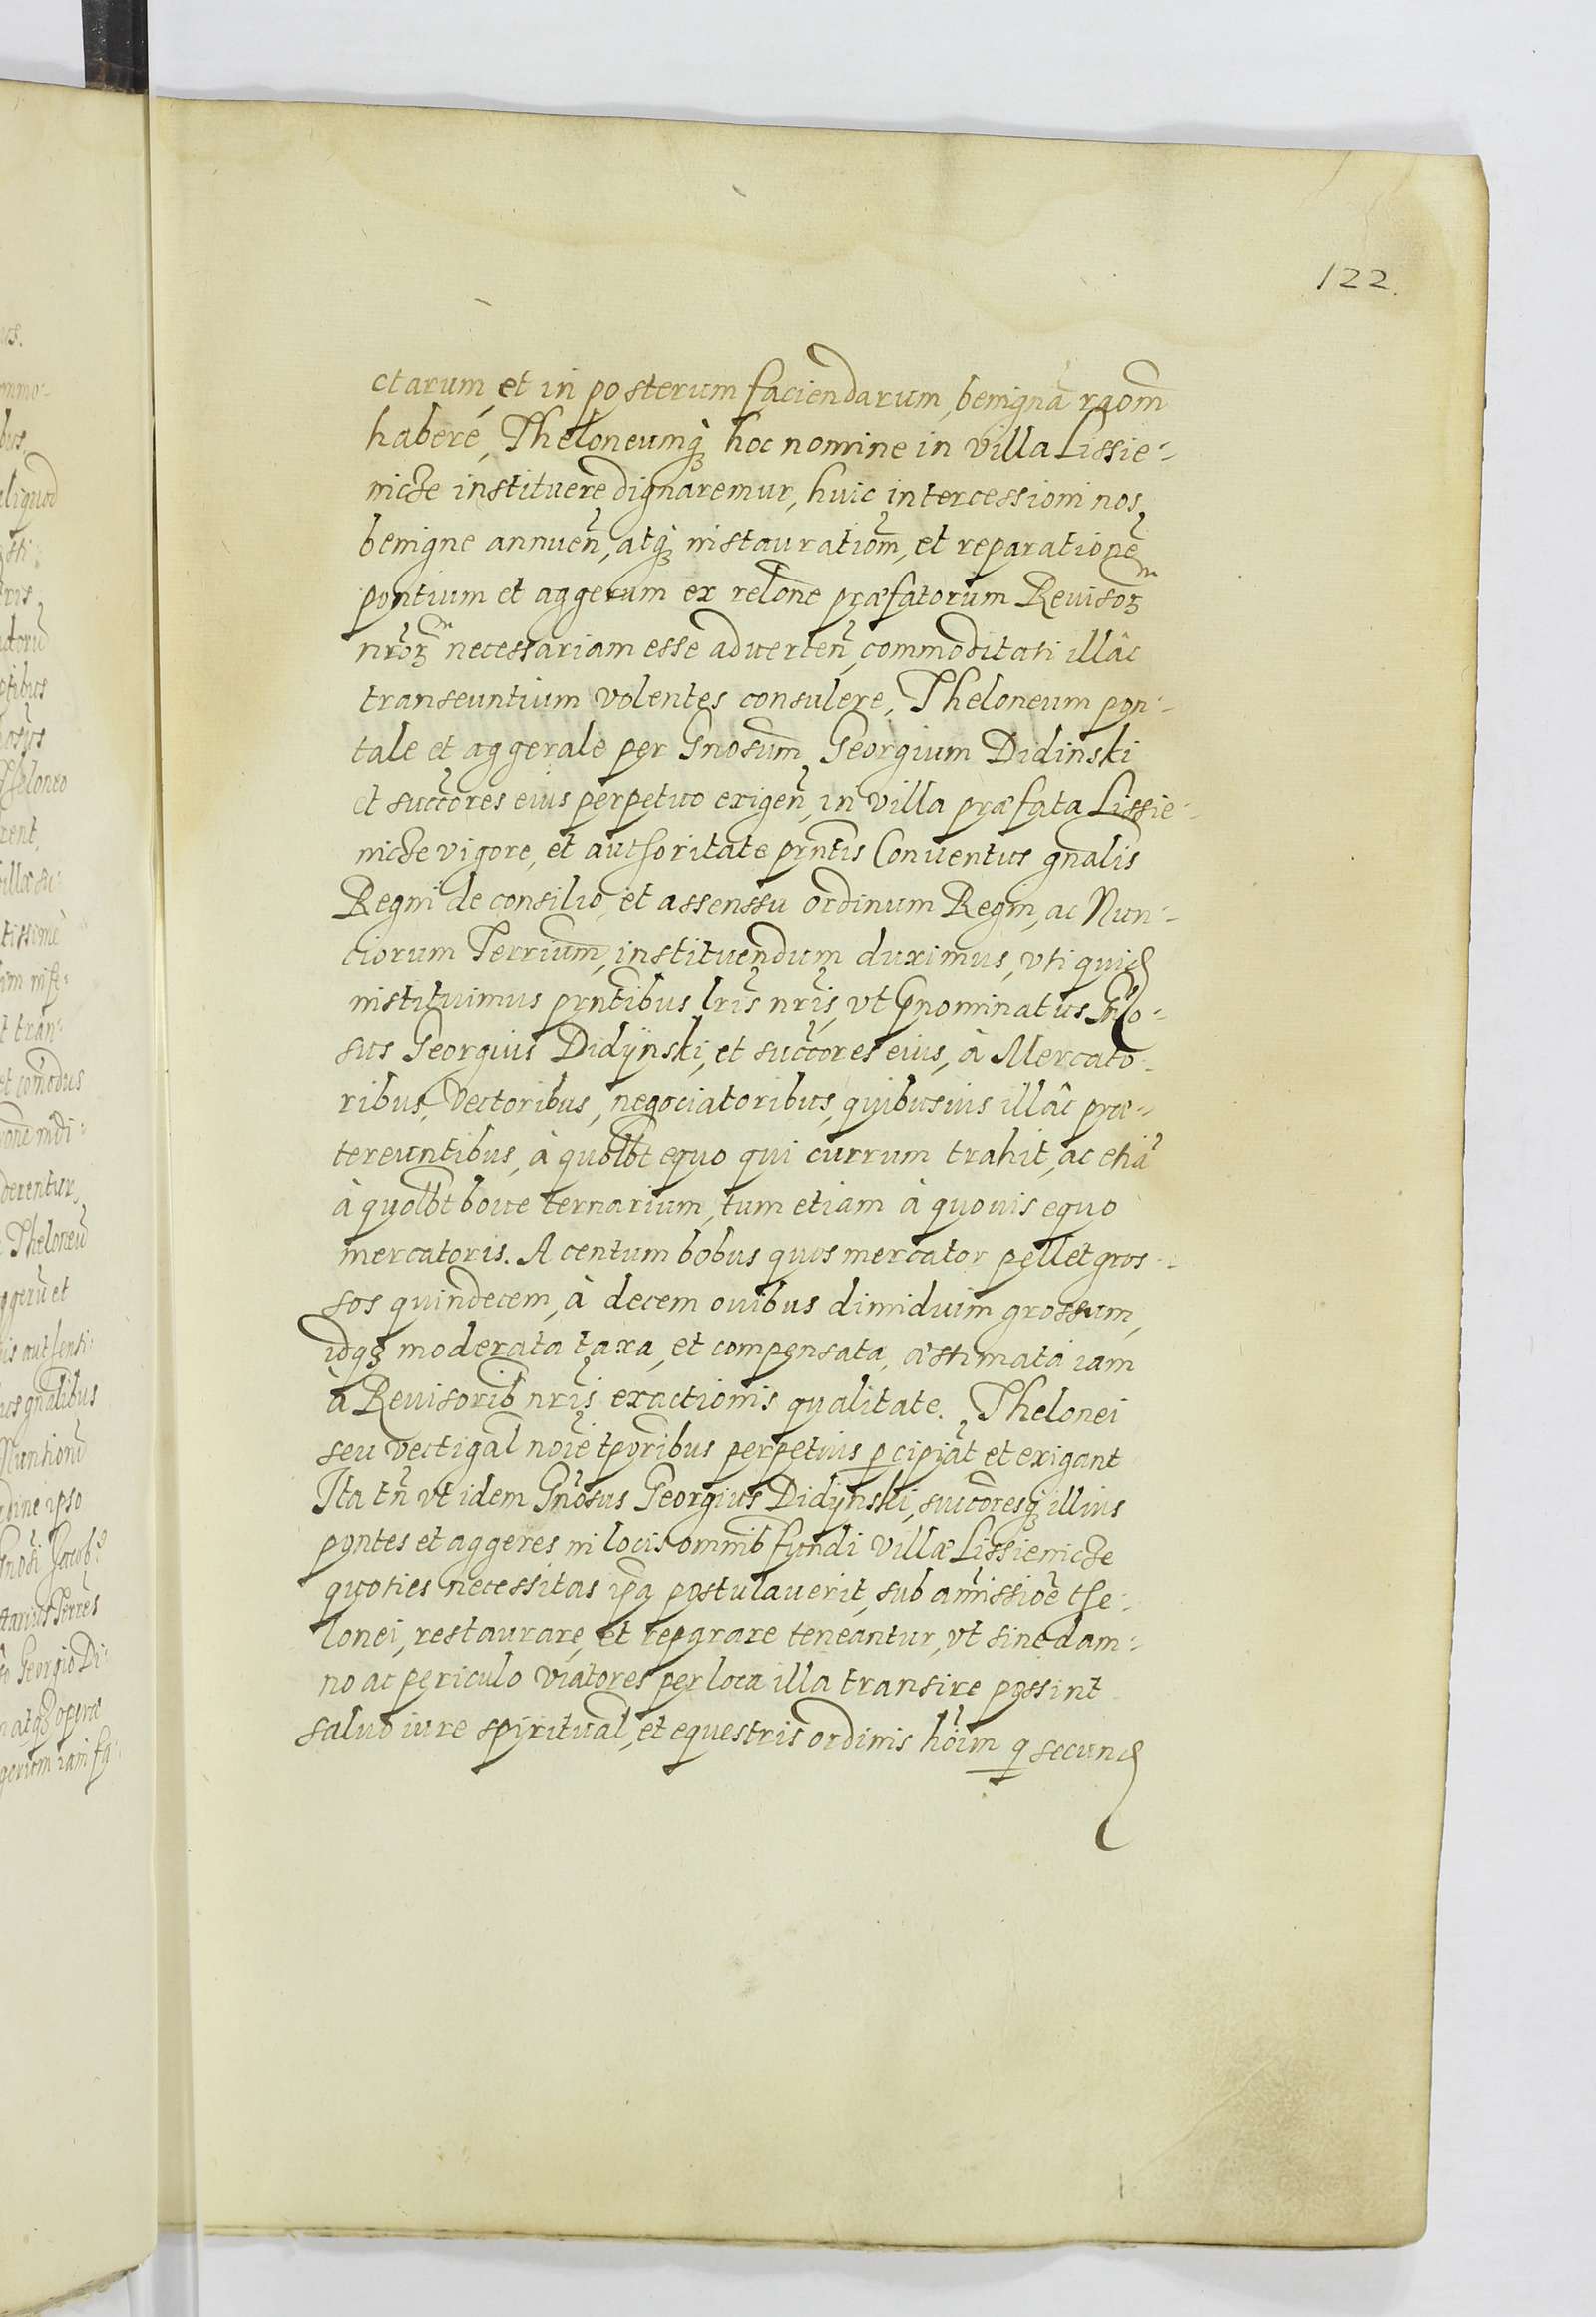 122.
ctarum, et in posterum faciendarum, benignã raõm
habere, Theloneumq́ʒ hoc nomine in villa Lissie-
nicze instituere dignaremur, huic intercessioni nos
benigne annuen̄, atq́ʒ instauratiom̄, et reparationē
pontium et aggerum ex relõne præfatorum Reuisoʒ
nr̃oʒ necessariam esse aduerten̄, commoditati illâc
transeuntium volentes consulere, Theloneum pon-
tale et aggerale per Gnosum̄ Georgium Didinski
et succ̃ores eius perpetuo exigen̄, in villa præfata Lissie-
nicze vigore, et authoritate pñtis Conuentus gñalis
Regni de consilio, et assenssu ordinum Regni, ac Nun-
ciorum Terrium̄, instituendum duximus, vti quid
instituimus pñtibus lr̃is nr̃is, vt pnominatus Gño-
sus Georgius Didÿnski, et succ̃ores eius, à Mercato-
ribus, Vectoribus, negociatoribus, quibusuis illâc præ-
tereuntibus, à quolb̃t equo qui currum trahit, ac etiã
à quolb̃t boue ternarium, tum etiam à quouis equo
mercatoris. A centum bobus quos mercator pellet gros-
sos quindecem, à decem ouibus dimidium grossum,
idqʒ moderata taxa, et compensata, æstimata iam
à Reuisorib̃ nr̃is exactionis qualitate. Thelonei
seu vectigal̃ noĩe tp̃oribus perpetuis pcipiãt et exigant
Ita tñ vt idem Gñosus Georgius Didÿnski, succ̃oresq́ʒ illius
pontes et aggeres in locis omnib̃ fundi villæ Lissienicze
quoties necessitas ip̃a postulauerit, sub amissiõe the-
lonei, restaurare, et reparare teneantur, vt sine dam-
no ac periculo viatores per loca illa transire possint
saluo iure spiritual̃, et equestris ordinis hõim q secund